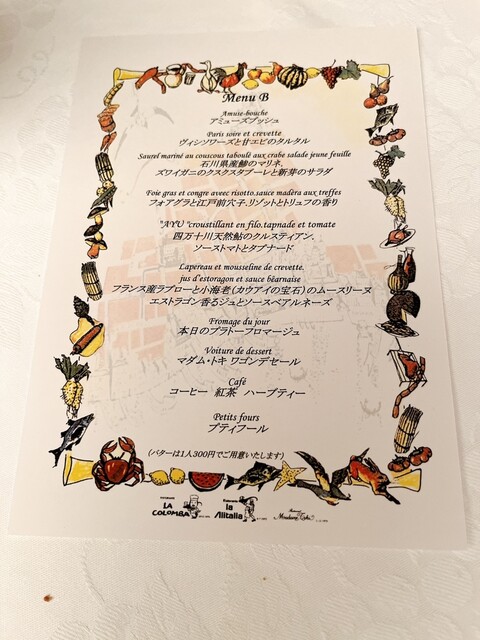 Menu B
Amuse-bouche
アミューズブッシュ
Paris soire et crevette
ヴィシソワーズと甘エビのタルタル
Saurel mariné au couscous taboulé aux crabe salade jeune feuille
石川県産鯵のマリネ、
ズワイガニのクスクスタブーレと新芽のサラダ
Foie gras et congre avec risotto.sauce madèra aux treffes
フォアグラと江戸前穴子、リゾットとトリュフの香り
"AYU "croustillant en filo.tapnade et tomate
四万十川天然鮎のクルスティアン、
ソーストマトとタプナード
Lapereau et mousseline de crevette.
jus d'estoragon et sauce béarnaise
フランス産ラプローと小海老(カウアイの宝石)のムースリーヌ
エストラゴン香るジュとソースベアルネーズ
Fromage du jour
本日のプラトーフロマージュ
Voiture de dessert
マダム・トキ ワゴンデセール
Café
コーヒー 紅茶 ハーブティー
Petits fours
プティフール
(バターは1人300円でご用意いたします)
RISTORANTE
LA COLOMBA
Ristorante
la Alitalia
Madame Toki